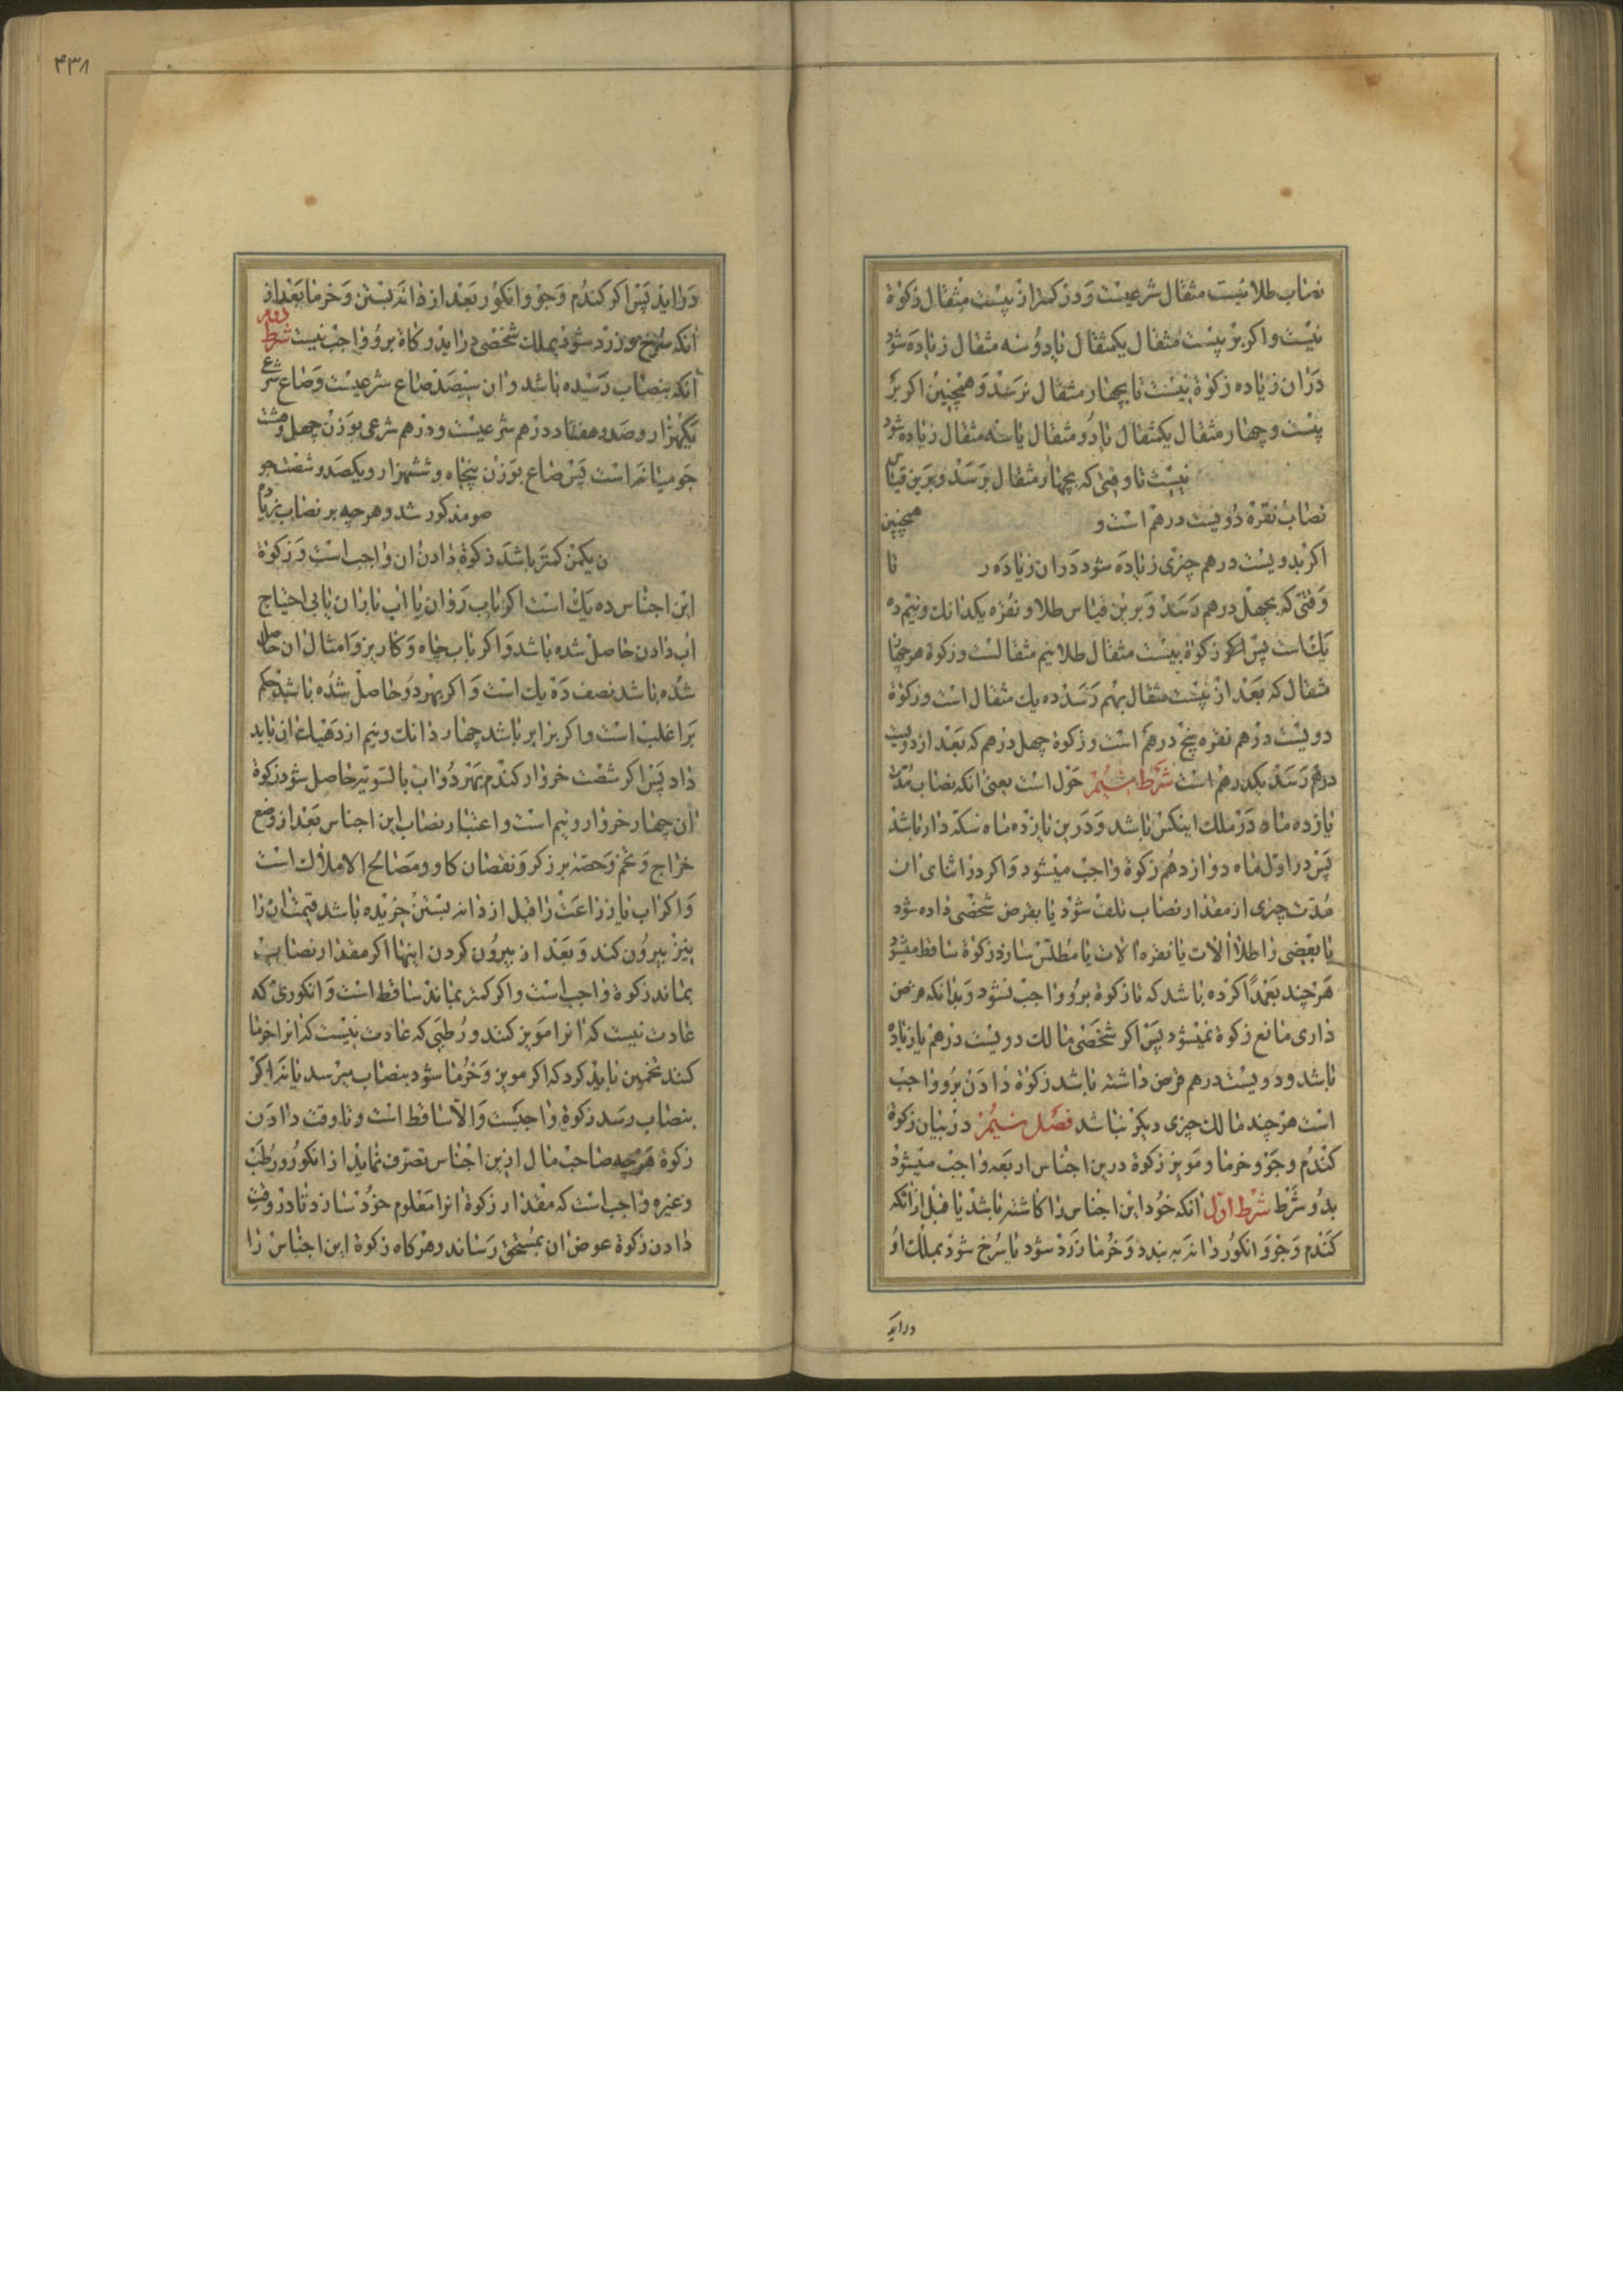 نصاب طلا بیست مثقال شرعیست و در کمتر از بیست مثقال زکوة
نیست و اکر بر بیست مثقال یکمثقال یا دو سه مثقال زیاده شود
در ان زیاده زکوة نیست تا بچهار مثقال نرسد و همچنین اکر بر
بیست و چهار مثقال یکمثقال یا دو مثقال یا سه مثقال زیاده شود
نیست تا وقتی که بچهار مثقال برسد و برین قیاس
نصاب نقره دویست درهم است و همچنین
اکر بدویست درهم چیزی زیاده شود در ان زیاده ر تا
وقتی که بچهل درهم رسد و برین قیاس طلا و نقره یکدانك و نیم ده
یك است پس زکوة بیست مثقال طلا نیم مثقالست و زکوة هر چهار
مثقال که بعد از بیست مثقال بهم رسد ده یك مثقال است و زکوة
دویست درهم نقره پنج درهم است و زکوة چهل درهم که بعد از دویست
درهم رسد یکدرهم است شرط سیم حول است یعنی انکه نصاب مدت
یازده ماه در ملك اینکس باشد و درین یازده ماه سکه دار باشد
پس در اول ماه دوازدهم زکوة واجب میشود و اکر در اثنای ان
مدت چیزی از مقدار نصاب تلف شود یا بقرض شخصی داده شود
یا بعضی را طلا الات یا نقره الات یا مطلس سازد زکوة ساقط میشود
هر چند بعمدا کرده باشد که تا زکوة برو واجب نشود و بدانکه قرض
داری مانع زکوة نمیشود پس اکر شخصی مالك دویست درهم یا زیاده
باشد و دویست درهم قرض داشته باشد زکوة دادن برو واجب
است هر چند مالك چیزی دیکر نباشد فصل سیم در بیان زکوة
کندم و جو و خرما و مویز زکوة درین اجناس اربعه واجب میشود
بدو شرط شرط اول انکه خود این اجناس را کاشته باشد یا قبل از انکه
کندم و جو و انکور دانه به بندد و خرما زرد شود یا سرخ شود بملك او
دراید
۴۳۸
دراید پس اکر کندم و جو و انکور بعد از دانه بستن و خرما بعد از
انکه سرخ و زرد شود بملك شخصی دراید زکاة برو واجب نیست شرط دوم
انکه بنصاب رسیده باشد و ان سیصد صاع شرعیست و صاع شرع
یکهزار و صد و هفتاد درهم شرعیست و درهم شرعی بوزن چهل و هشت
جو میانه است پس صاع بوزن پنجاه و ششهزار و یکصد و شصت جو
صو مذکور شد و هر چه بر نصاب
ن یکمن کمتر باشد زکوة دادن ان واجب است و زکوة
این اجناس ده یك است اکر باب روان یا اب باران یا بی احتیاج
اب دادن حاصل شده باشد و اکر باب چاه و کاریز و امثال ان حاصل
شده باشد نصف ده یك است و اکر بهر دو حاصل شده باشد حکم
بر اغلب است و اکر برابر باشد چهار دانك و نیم از دهیك ان باید
داد پس اکر شصت خروار کندم بهر دو اب بالسویه حاصل شود زکوة
ان چهار خروار و نیم است و اعتبار نصاب این اجناس بعد از وضع
خراج و تخم و حصه برزکر و نقصان کاو و مصالح الاملاك است
و اکر اب یا زراعت را قبل از دانه بستن خریده باشد قیمت ان را
نیز بیرون کند و بعد از بیرون کردن اینها اکر مقدار نصاب
بماند زکوة واجب است و اکر کمتر بماند ساقط است و انکوری که
عادت نیست که انرا مویز کنند و رطبی که عادت نیست که انرا خرما
کنند تخمین باید کرد که اکر مویز و خرما شود بنصاب میرسد یا نه اکر
بنصاب رسد زکوة واجبست و الا ساقط است و تا وقت دادن
زکوة هر چه صاحب مال ازین اجناس تصرف نماید از انکور و رطب
و غیره واجب است که مقدار زکوة انرا معلوم خود سازد تا در وقت
دادن زکوة عوض ان بمستحق رساند و هر کاه زکوة این اجناس را